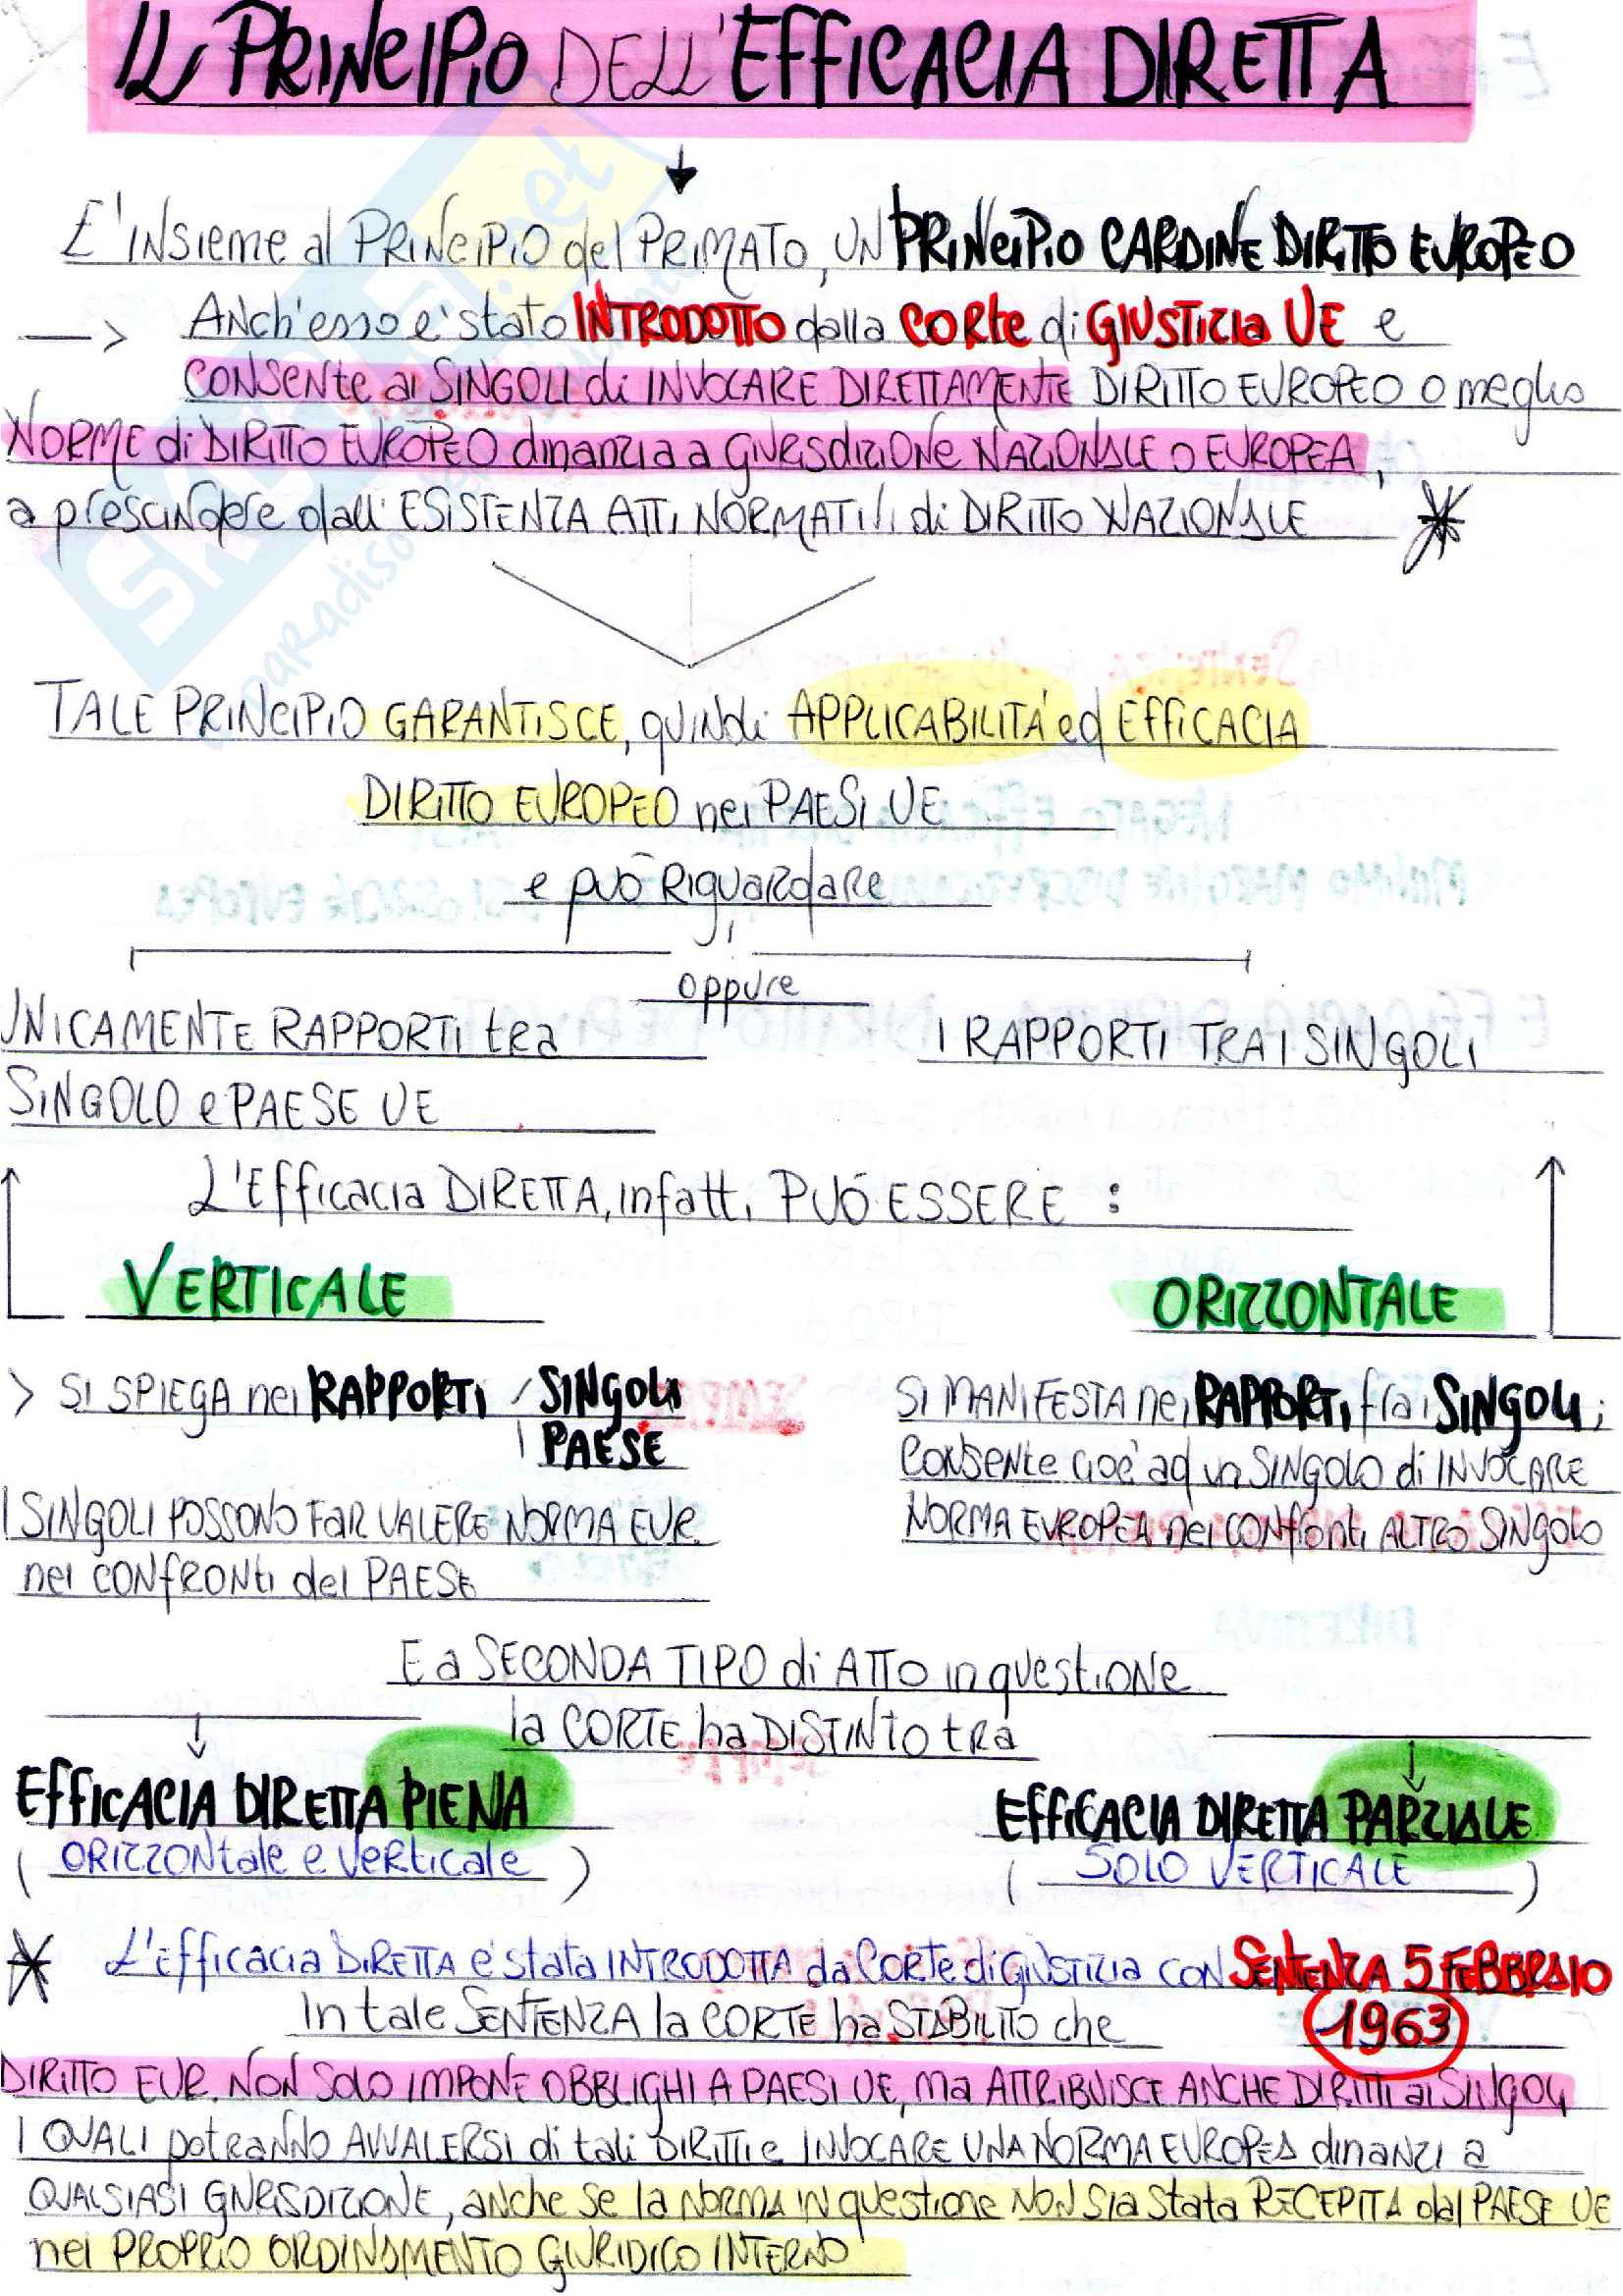 IL PRINCIPIO DELL'EFFICACIA DIRETTA
E' INSIEME al PRINCIPIO del PRIMATO, UN PRINCIPIO CARDINE DIRITTO EUROPEO
—> ANCH'esso e' stato INTRODOTTO dalla CORTE di GIUSTIZIA UE e
CONSENTE ai SINGOLI di INVOCARE DIRETTAMENTE DIRITTO EUROPEO o meglio
NORME di DIRITTO EUROPEO dinanzia a GIURISDIZIONE NAZIONALE O EUROPEA,
a prescindere dall'ESISTENZA ATTI NORMATIVI di DIRITTO NAZIONALE *
TALE PRINCIPIO GARANTISCE, quindi APPLICABILITÁ ed EFFICACIA
DIRITTO EUROPEO nei PAESI UE
e può RIGUARDARE
oppure
UNICAMENTE RAPPORTI tra
SINGOLO e PAESE UE
I RAPPORTI TRA I SINGOLI
L'EFFICACIA DIRETTA, infatti PUÓ ESSERE :
VERTICALE
ORIZZONTALE
> SI SPIEGA nei RAPPORTI SINGOLI
PAESE
I SINGOLI POSSONO FAR VALERE NORMA EUR.
nei CONFRONTI del PAESE
SI MANIFESTA nei RAPPORTI fra i SINGOLI;
CONSENTE cioè ad un SINGOLO di INVOCARE
NORMA EUROPEA nei CONFRONTI ALTRO SINGOLO
E a SECONDA TIPO di ATTO in questione
la CORTE ha DISTINTO tra
EFFICACIA DIRETTA PIENA
(ORIZZONTALE e VERTICALE)
EFFICACIA DIRETTA PARZIALE
(SOLO VERTICALE)
* L'EFFICACIA DIRETTA e' stata INTRODOTTA da CORTE di GIUSTIZIA CON SENTENZA 5 FEBBRAIO
1963
In tale SENTENZA la CORTE ha STABILITO che
DIRITTO EUR. NON SOLO IMPONE OBBLIGHI A PAESI UE, ma ATTRIBUISCE ANCHE DIRITTI ai SINGOLI
I QUALI potRANNO AVVALERSI di tali DIRITTI e INVOCARE UNA NORMA EUROPEA dinanzi a
QUALSIASI GIURISDIZIONE, anche se la NORMA IN questione NON sia stata RECEPITA dal PAESE UE
nel PROPRIO ORDINAMENTO GIURIDICO INTERNO